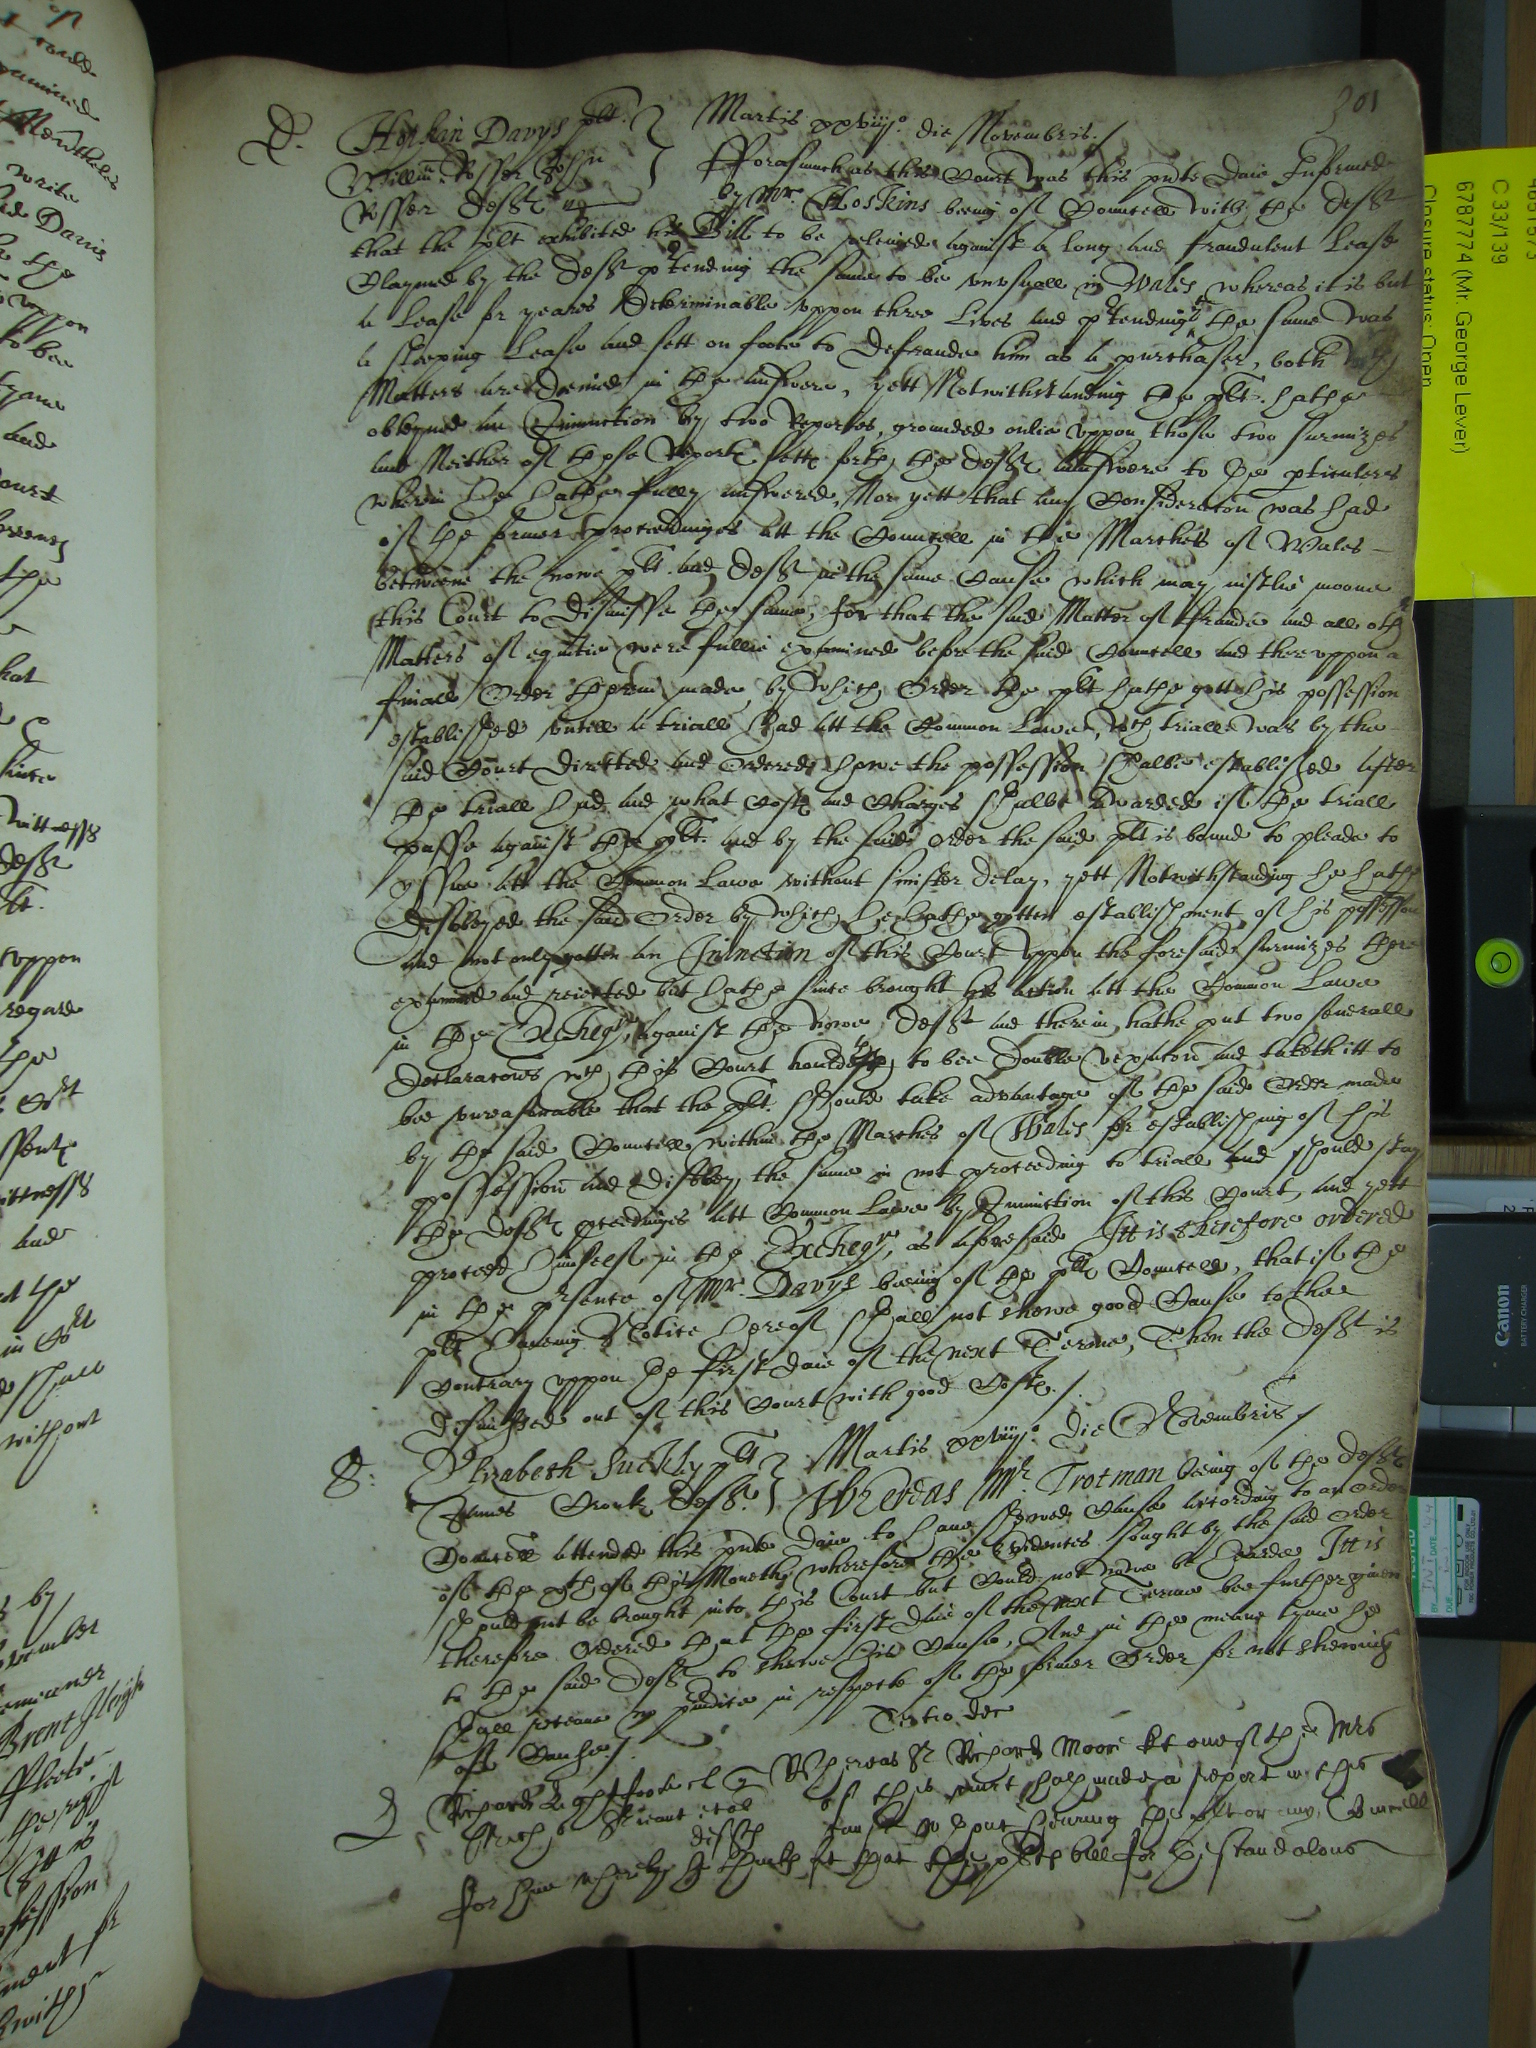 301
D. Hoskin Davys plt. Martis xxviij.o die Novembris./
Willm Rosser Fforasmuch as this Court was this pnte daie Informed
Rosser defts by Mr. Hoskins being of Councell with the defts
that the plt exhibited his Bill to be releived against a long and fraudulent Lease
Claymed by the defts ptending the same to be unusuall in Wales whereas it is but
a Lease for yeares determinable uppon three Lives and ptending the same was
a sleeping Lease and sett on foote to defraude him as a purchaser, both wch
Matters are denied in the answere, yett Notwithstanding the plt. hathe
obteyned an Iniunction by two Reportes, grounded onlie uppon those two surmizes
and Neither of these Reportes setts forth the defts answere to the pticulers
wherein he hathe fully answered, Nor yett that any Consideracon was had
of the former proceedinges att the Councell in the Marches of Wales
betweene the nowe plt. and defts in the same Cause which may iustlie moove
this Court to dismisse the same, for that the said Matter of fraude and all oth
Matters of equitie were fullie examined before the said Councell and thereuppon a
finall Order therein made, by which Order the plt hathe gott his possession
established untill a triall had att the Common Lawe, wch triall was by the
said Court directed and Ordered howe the possession shalbe established after
the triall had and what Costs and Charges shalbe awarded if the triall
passe against the plt. and by the said order the said plt is bound to pleade to
yssue att the Common Lawe without sinister delay, yett Notwithstanding he hathe
disobeyed the said Order by which he hathe gotten establishment of his possession
and not only gotten an Iniunction of this Court uppon the foresaid surmizes there
examined and reiected but hathe since brought his action att the Common Lawe
in the Excheqr, against the nowe defts and therein hathe put two severall
declaracons wch this Court houldeth to bee double vexacon and taketh itt to
bee unreasonable that the plt. should take advantage of the said Order made
by the said Councell within the Marches of Wales for establishing of his
possession and disobey the same in not proceeding to triall and should stay
the defts proceedinges att Common Lawe by Iniunction of this Court, and yett
proceed himselfe in the Excheqr, as aforesaid Itt is therefore ordered
in the presence of Mr. Davys beeing of the plts Councell, that if the
plt having Notice hereof shall not shewe good Cause to the
Contrary uppon the first daie of the next Terme, Then the defts is
dismissed out of this Court with good Costs./.
S: Elizabeth Suckly plt Martis xxviij.o die Novembris /
James deft. Whereas Mr. Trotman being of the defts
Councell attended this pnte daie to have shewed Cause according to an Order
of the xth of this Moneth wherefore the Evidences sought by the said Order
should not be brought into this Court but Could not nowe be heard Itt is
therefore Ordered that the first daie of the next Terme bee further given
to the said deft to shewe his Cause, And in the meane tyme he
shall receave no preiudice in respecte of the former Order for not shewing
of Cause./.
Tertio die
Richard Lightfoote pl Whereas Sr Richard Moore kt one of the Mrs
of this court hath made a report in this
deffts cause without hearing the plt or any Councell
for him whereby he thinks fit that the plts bill for he stand alone